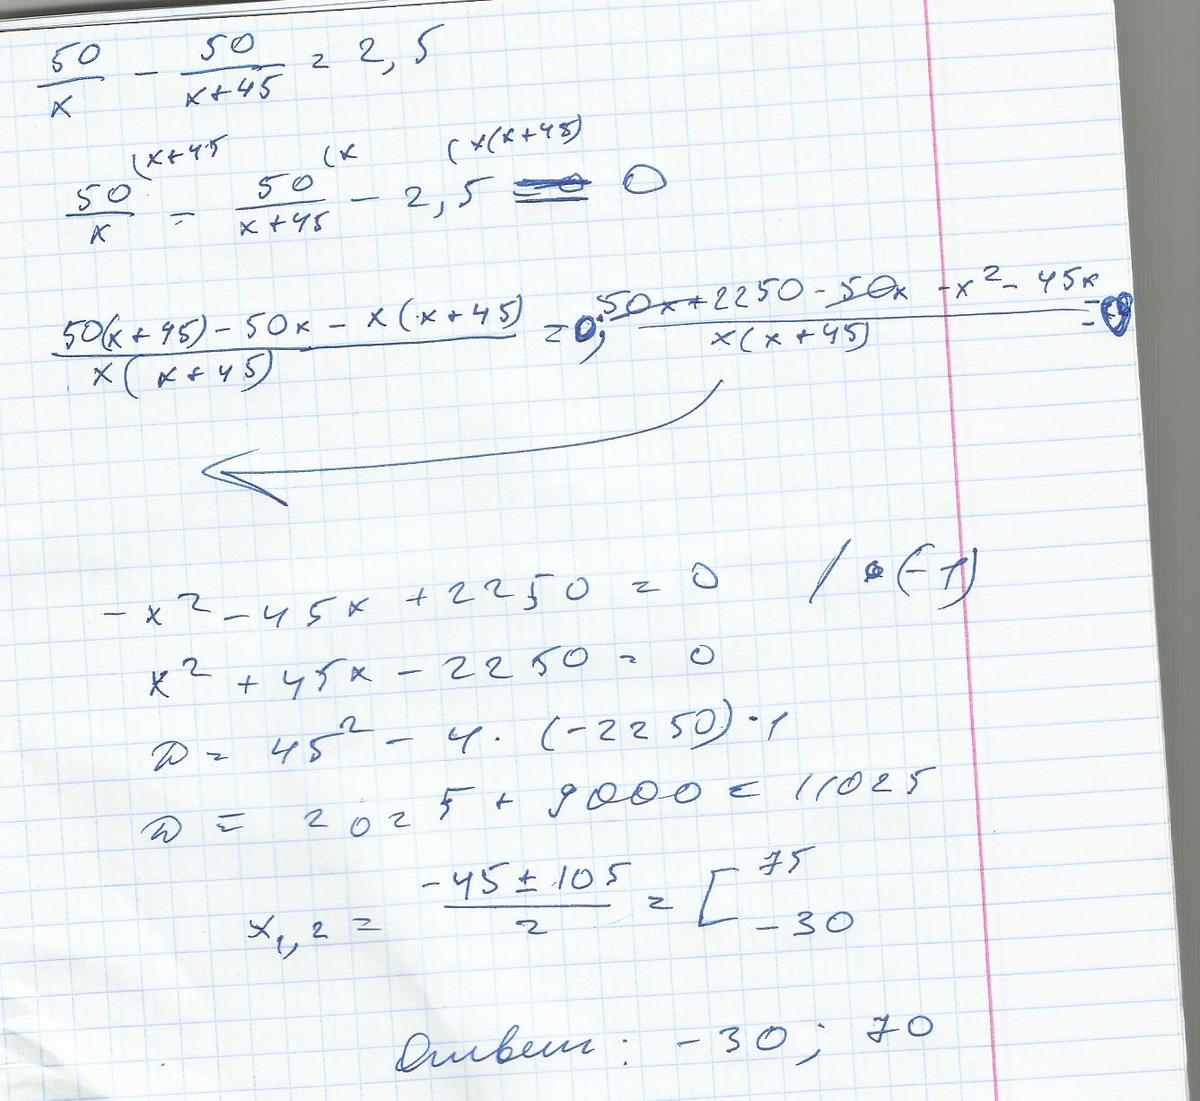 50/x - 50/(x+45) = 2,5
(x+45 (x (x(x+45)
50/x - 50/(x+45) - 2,5 = 0
(50(x+45) - 50x - x(x+45))/(x(x+45)) = 0; (50x+2250-50x-x²-45x)/(x(x+45)) = 0
-x² - 45x + 2250 = 0 / · (-1)
x² + 45x - 2250 = 0
D = 45² - 4 · (-2250) · 1
D = 2025 + 9000 = 11025
x₁,₂ = (-45 ± 105)/2 = [ 75 -30
Ответ: -30; 70